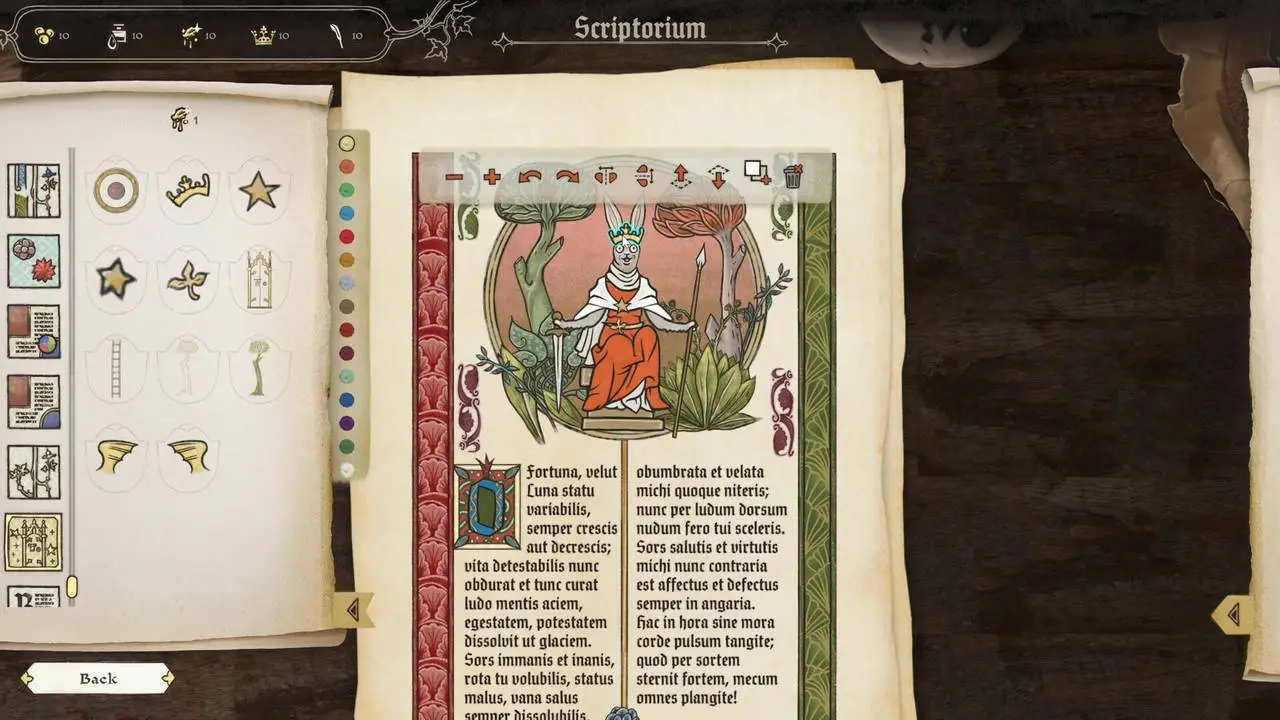 10
10
10
10
10
Scriptorium
1
Fortuna, velut
Luna statu
variabilis,
semper crescis
aut decrescis;
vita detestabilis nunc
obdurat et tunc curat
ludo mentis aciem,
egestatem, potestatem
dissolvit ut glaciem.
Sors immanis et inanis,
rota tu volubilis, status
malus, vana salus
semper dissolubilis,
obumbrata et velata
michi quoque niteris;
nunc per ludum dorsum
nudum fero tui sceleris.
Sors salutis et virtutis
michi nunc contraria
est affectus et defectus
semper in angaria.
Hac in hora sine mora
corde pulsum tangite;
quod per sortem
sternit fortem, mecum
omnes plangite!
Back